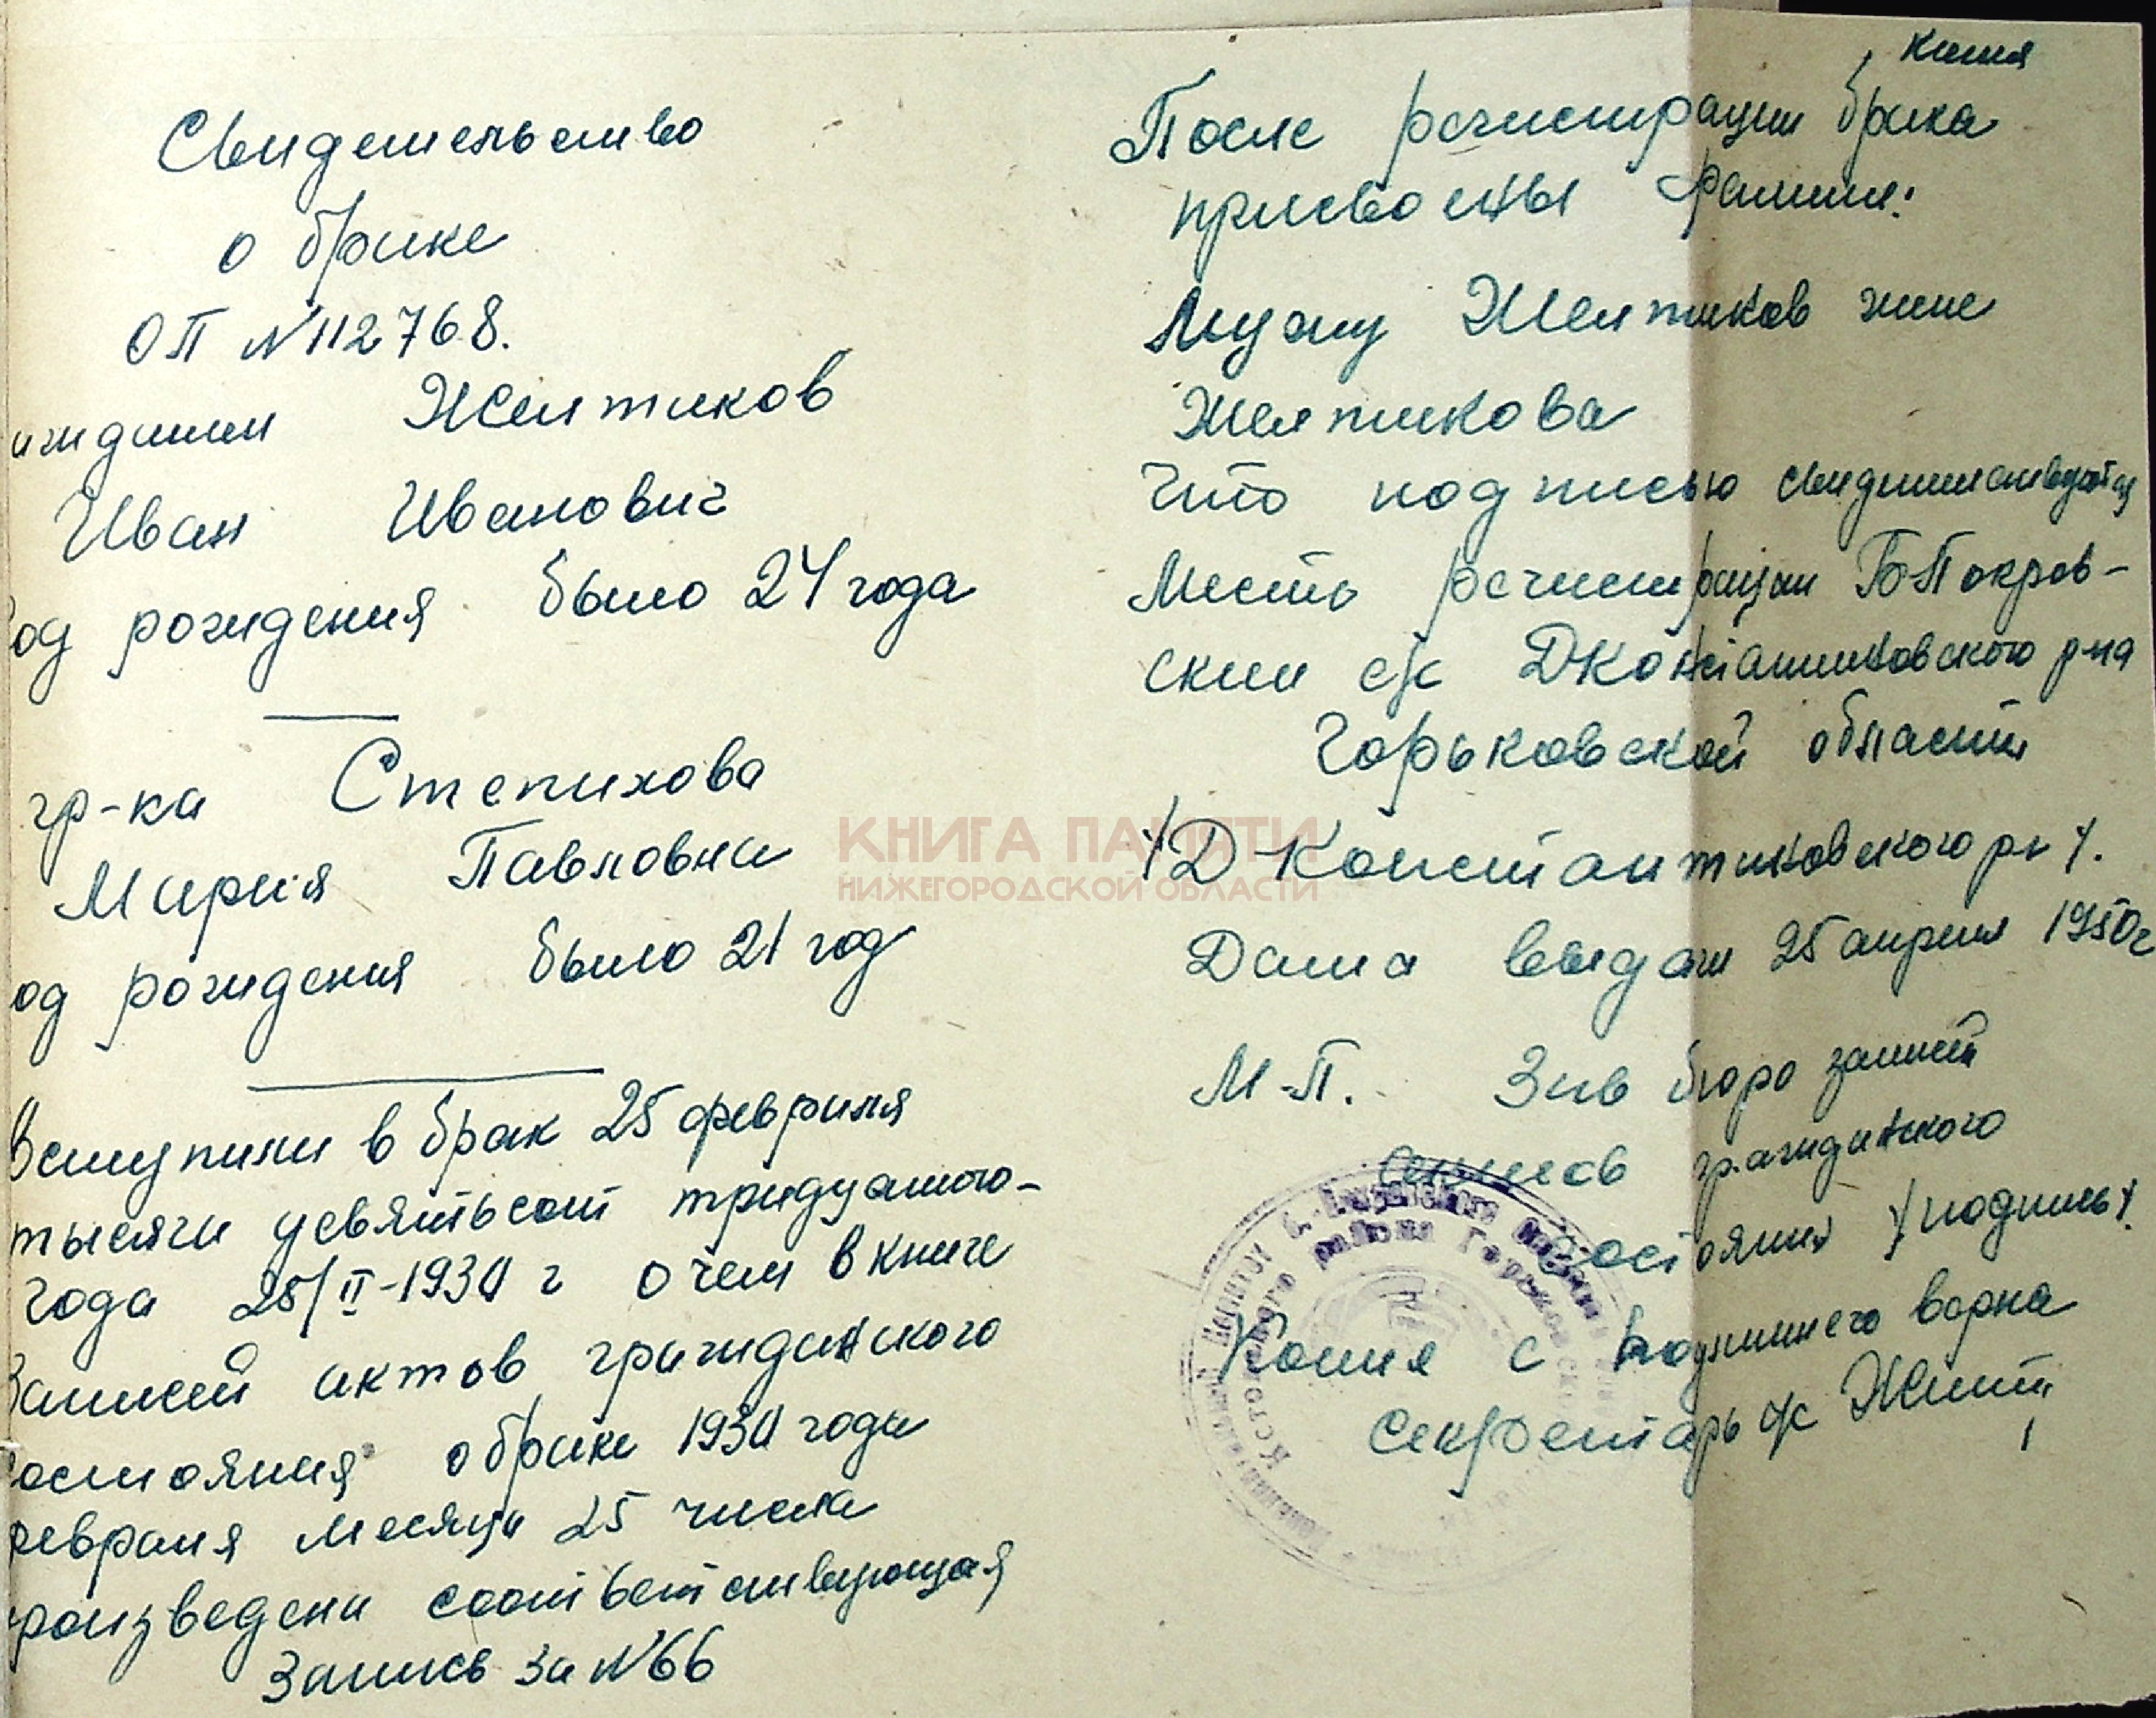 копия
Свидетельство
о браке
ОП №112768.
ажданин Желтиков
Иван Иванович
од рождения было 24 года
гр-ка Степихова
Мария Павловна
од рождения было 21 год
Вступили в брак 25 февраля
тысячи девятьсот тридцатого-
года 25/II-1930 г о чем в книге
Записей актов гражданского
состояния о браке 1930 года
февраля месяца 25 числа
роизведена соответствующая
Запись за №66
После регистрации брака
присвоены фамили:
Мужу Желтиков жене
Желтикова
Что подписью свидетельствуется
Место регистрации Б-Покров-
ский с/с ДКонстантиновского р-на
Горьковской области
/Д Константиновского р-н/.
Дата выдачи 25 апреля 1950г
М-П. Зав бюро записей
актов гражданского
состояния /подпись/.
Копия с подлинного верна
Секретарь с/с
КНИГА ПАМЯТИ
НИЖЕГОРОДСКОЙ ОБЛАСТИ
Кстовского района Горьковской